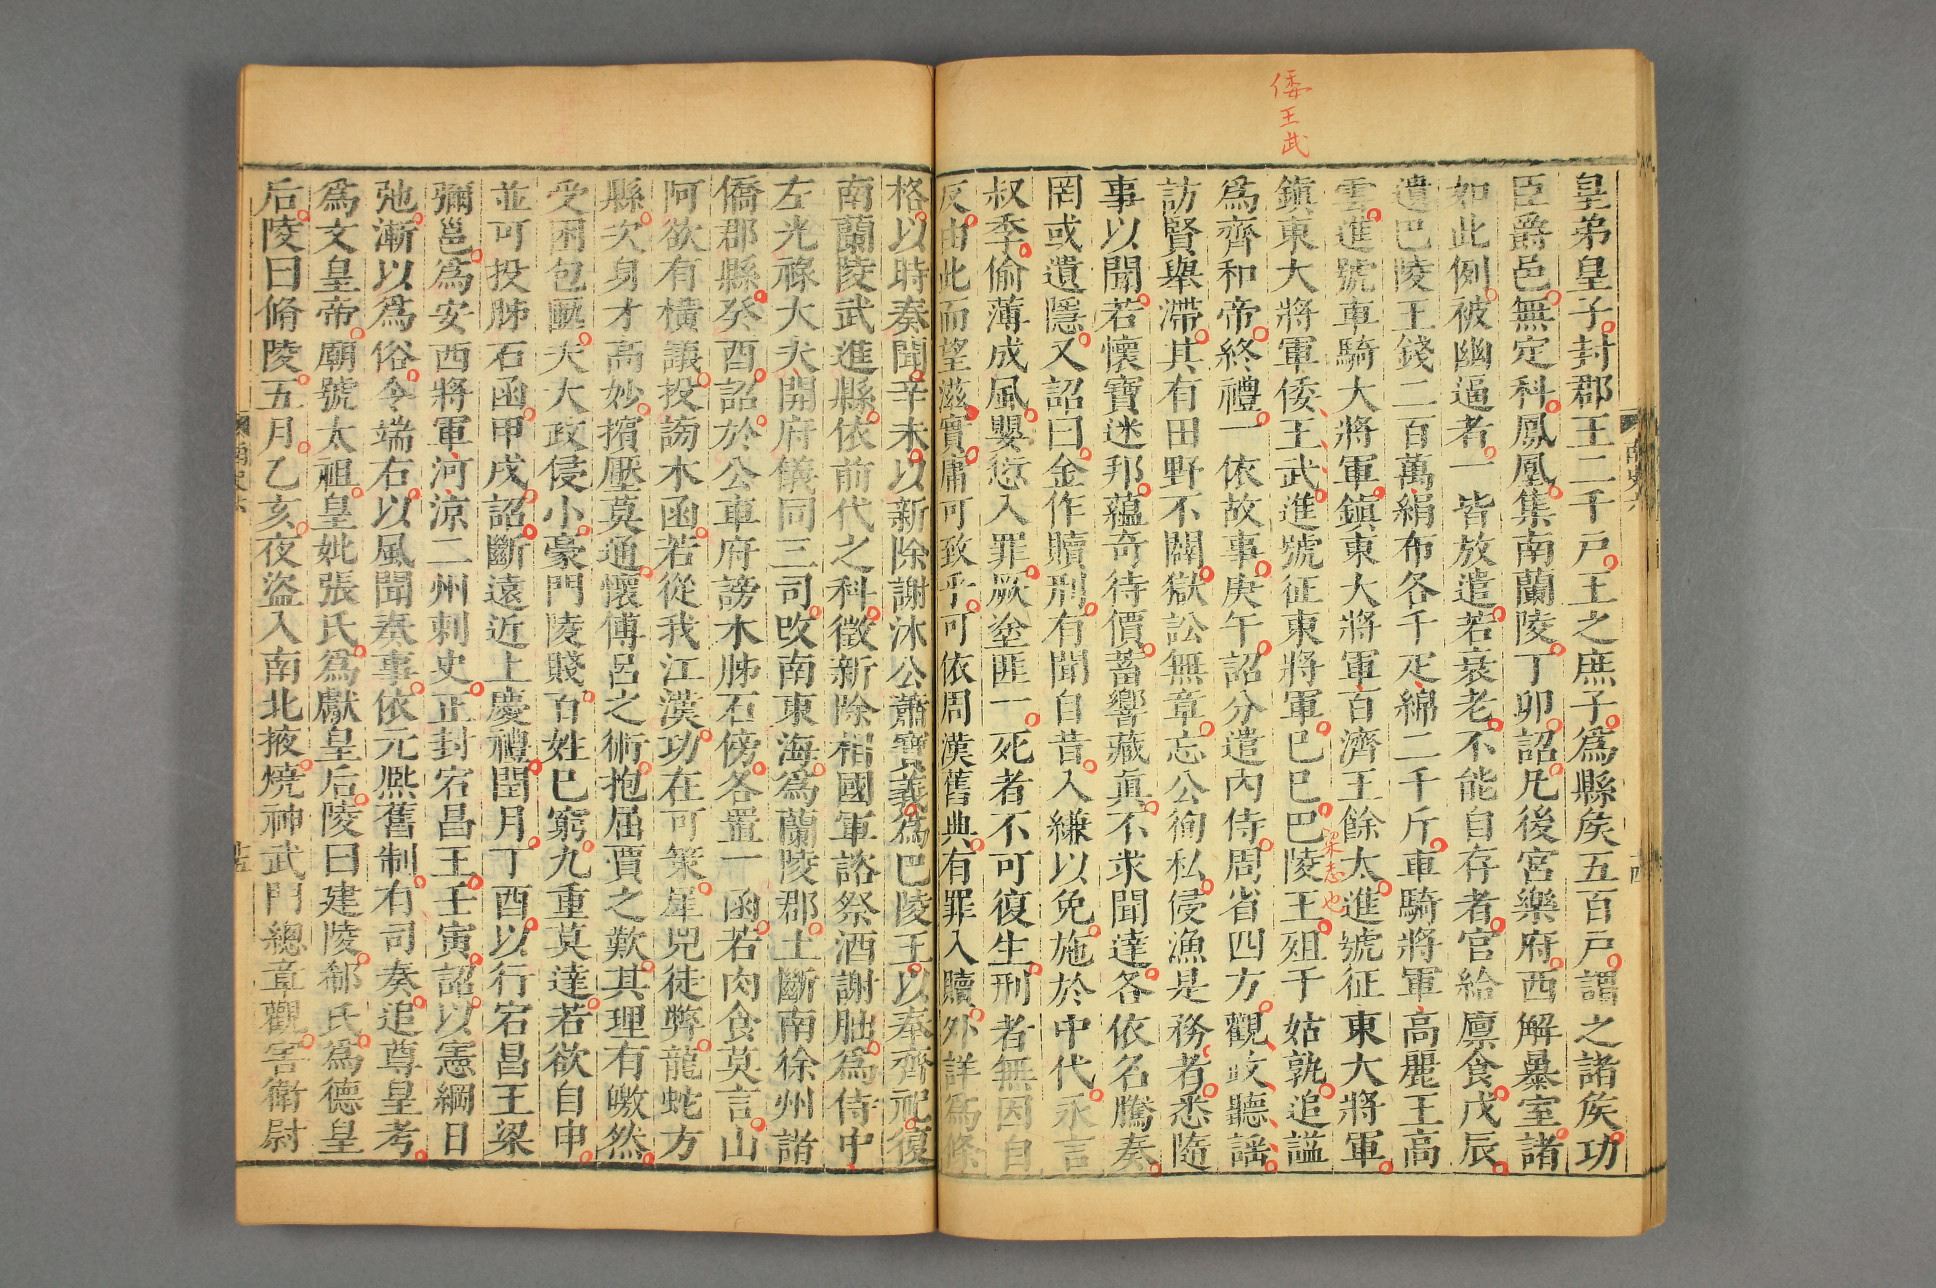 倭王武
皇弟皇子封郡王二千戸王之庶子爲縣矦五百戸謂之諸矦功
臣爵邑無定科鳳凰集南蘭陵丁卯詔凡後宮樂府西解暴室諸
如此例被幽逼者一皆放遣若衰老不能自存者官給廪食戊辰
遣巴陵王錢二百萬絹布各千疋綿二千斤車騎將軍高麗王高
雲進號車騎大將軍鎭東大將軍百濟王餘太進號征東大將軍
鎭東大將軍倭王武進號征東將軍巳巳巴陵王殂于姑孰追謚
梁志也
爲齊和帝終禮一依故事庚午詔分遣内侍周省四方觀政聽謡
訪賢舉滯其有田野不闢獄訟無章忘公徇私侵漁是務者悉隨
事以聞若懷寶迷邦蘊奇待價蓄響藏眞不求聞達各依名騰奏
罔或遺隱又詔曰金作贖刑有聞自昔入縑以免施於中代永言
叔季偷薄成風嬰愆入罪厥塗匪一死者不可復生刑者無因自
反由此而望滋實庸可致乎可依周漢舊典有罪入贖外詳爲條
格以時奏聞辛未以新除謝沐公蕭寶義爲巴陵王以奉齊祀復
南蘭陵武進縣依前代之科徵新除相國軍諮祭酒謝朏爲侍中
左光祿大夫開府儀同三司攺南東海爲蘭陵郡土斷南徐州諸
僑郡縣癸酉詔於公車府謗木肺石傍各置一函若肉食莫言山
阿欲有橫議投謗木函若從我江漢功在可策犀兕徒弊龍蛇方
縣次身才高妙擯壓莫通懷傅呂之術抱屈賈之歎其理有皦然
受困包匭夫大政侵小豪門陵賤百姓巳窮九重莫達若欲自申
並可投肺石函甲戌詔斷遠近上慶禮閏月丁酉以行宕昌王梁
彌邕爲安西將軍河凉二州刺史正封宕昌王壬寅詔以憲綱日
弛漸以爲俗令端右以風聞奏事依元熈舊制有司奏追尊皇考
爲文皇帝廟號太祖皇妣張氏爲獻皇后陵曰建陵郗氏爲德皇
后陵曰脩陵五月乙亥夜盜入南北掖燒神武門總章觀害衛尉